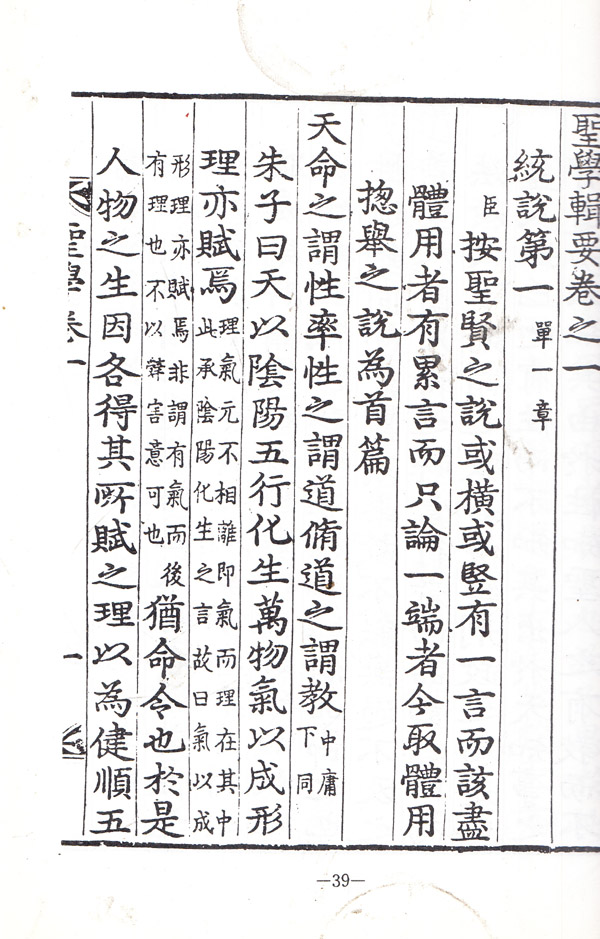 聖學輯要卷之一
統說第一 單一章
臣按聖賢之說或橫或豎有一言而該盡
體用者有累言而只論一端者今取體用
揔舉之說為首篇
天命之謂性率性之謂道脩道之謂教 中庸下同
朱子曰天以陰陽五行化生萬物氣以成形
理亦賦焉 理氣元不相離即氣而理在其中
此承陰陽化生之言故曰氣以成
形理亦賦焉非謂有氣而後
有理也不以辭害意可也
猶命令也於是
人物之生因各得其所賦之理以為健順五
聖學卷一
一
—39—